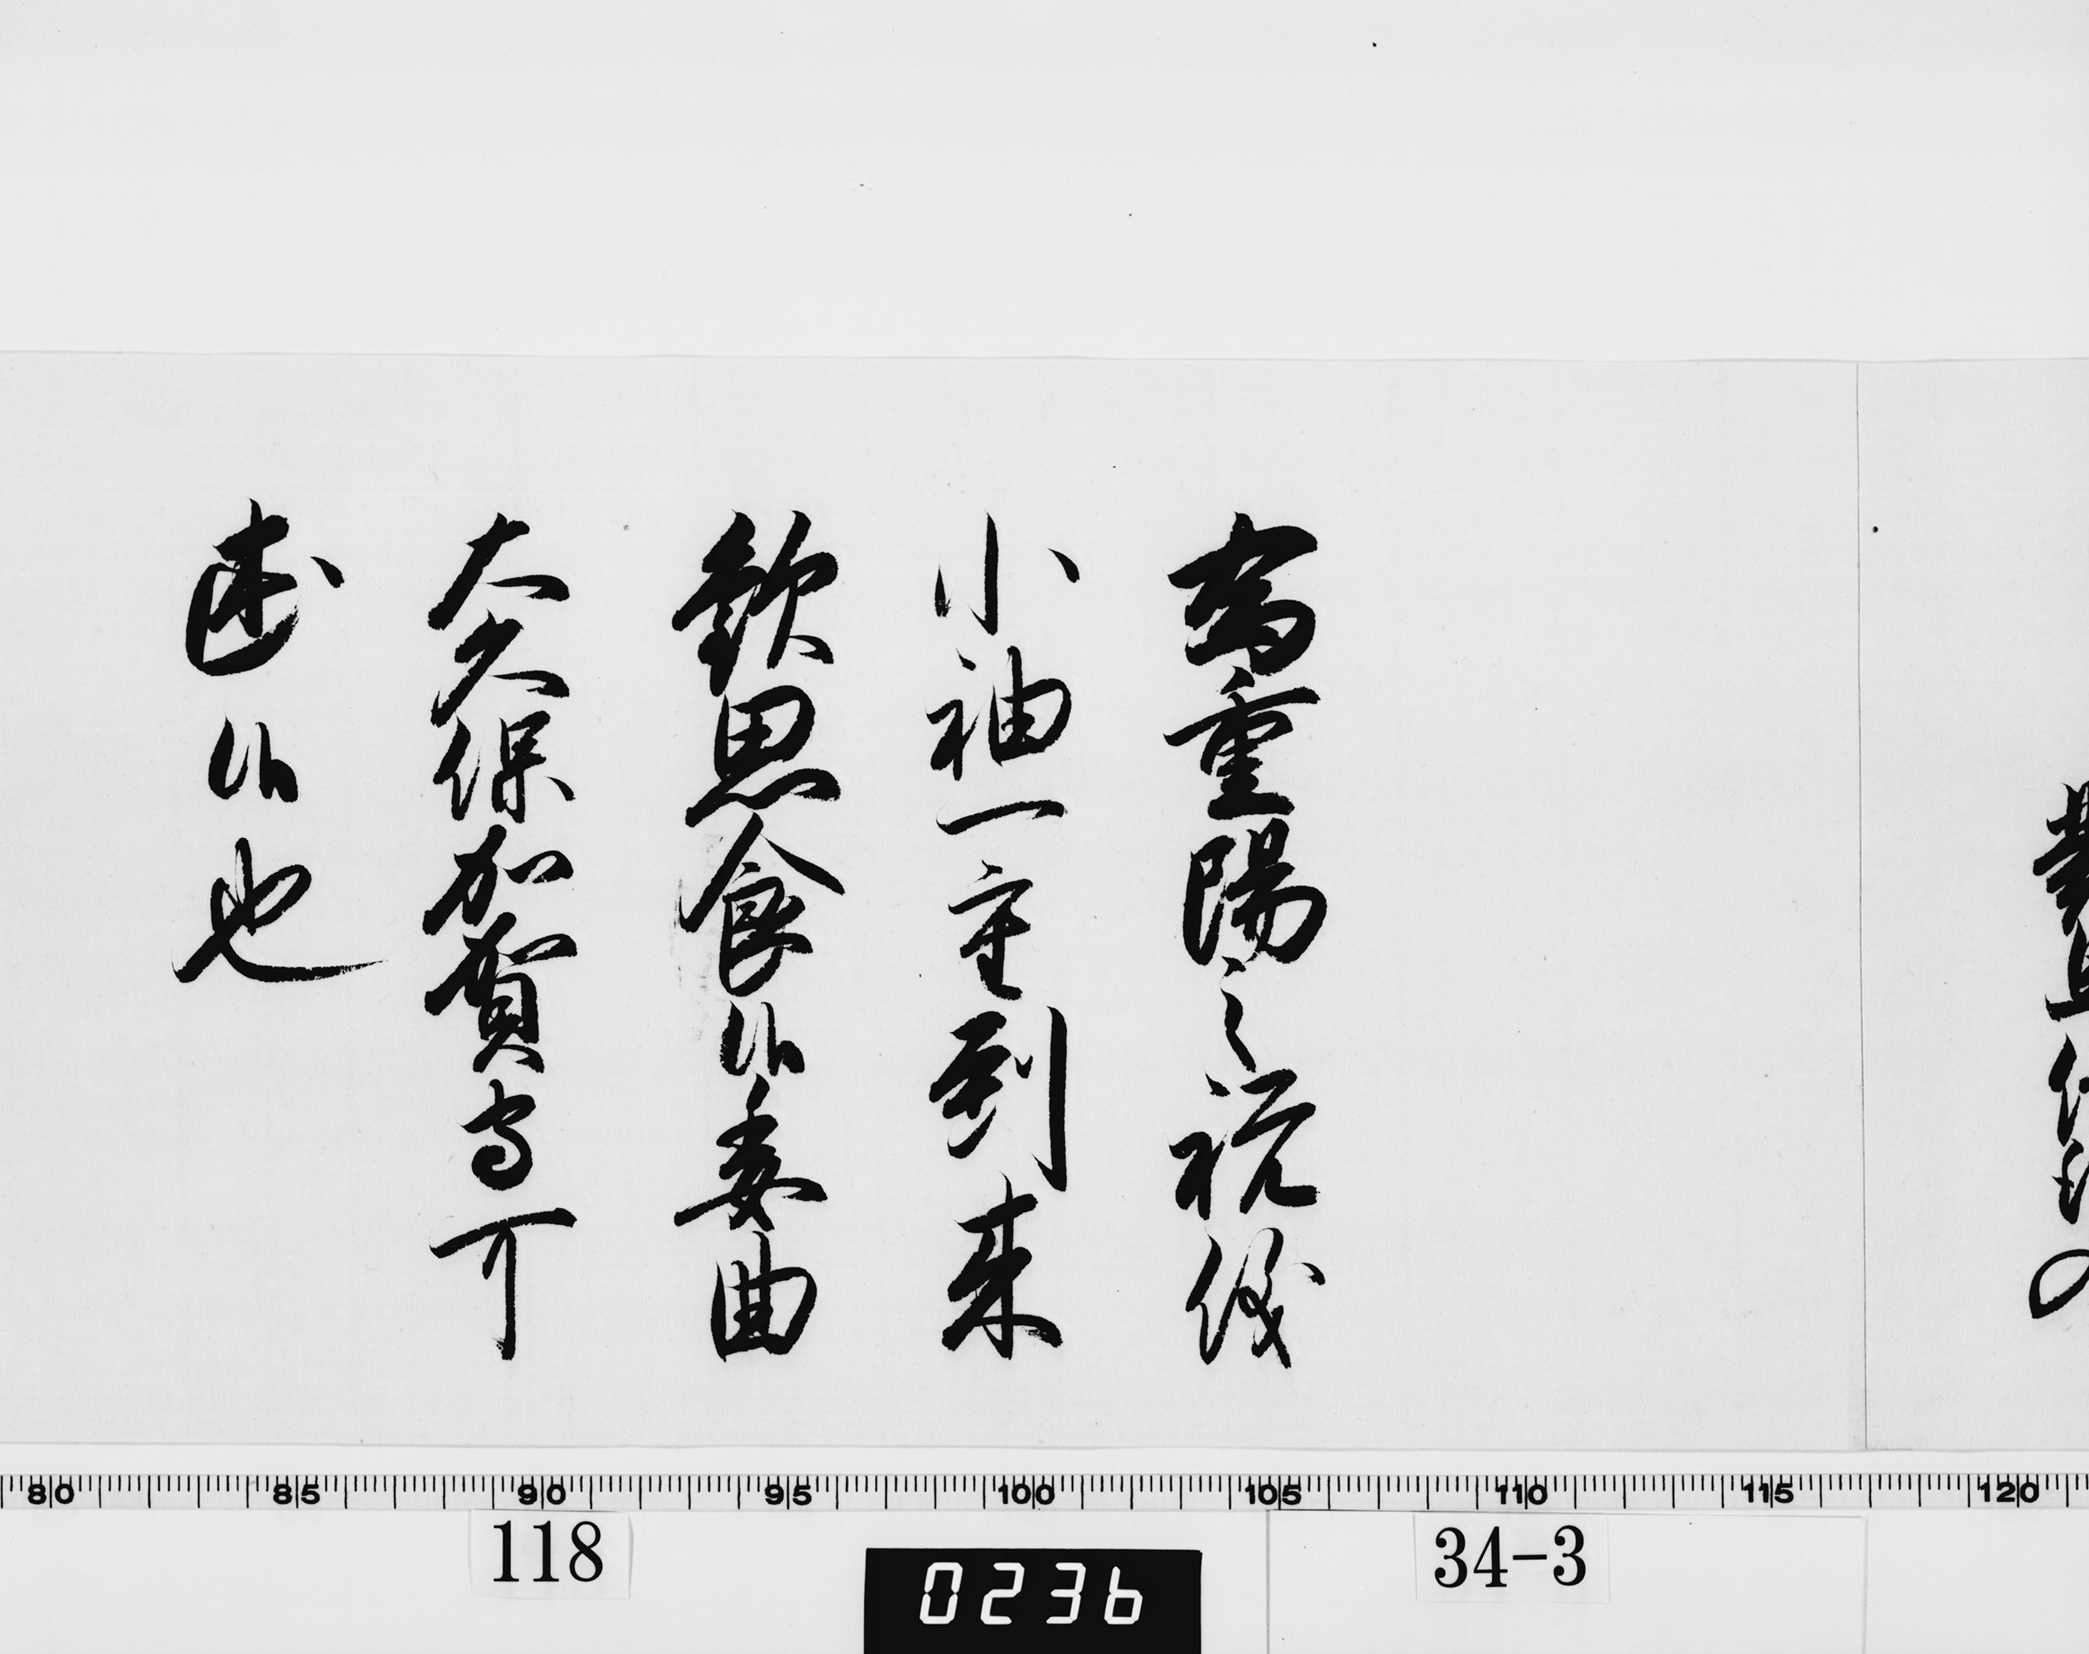 為重陽之祝儀
小袖一重到来
歓思食候委曲
大久保加賀守可
述候也
80 85 90 95 100 105 110 115 120
118
0236
34-3